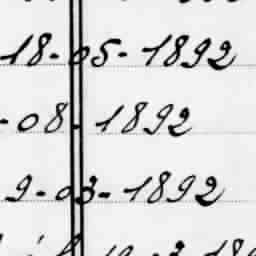 18-05-1892
-08-1892
9-03-1892